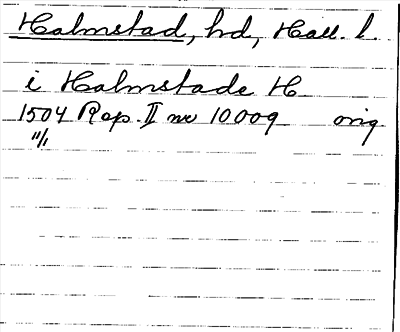 Halmstad, hd, Hall. l.
i Halmstade H
1504 Rep. II nr 10009 orig
11/1